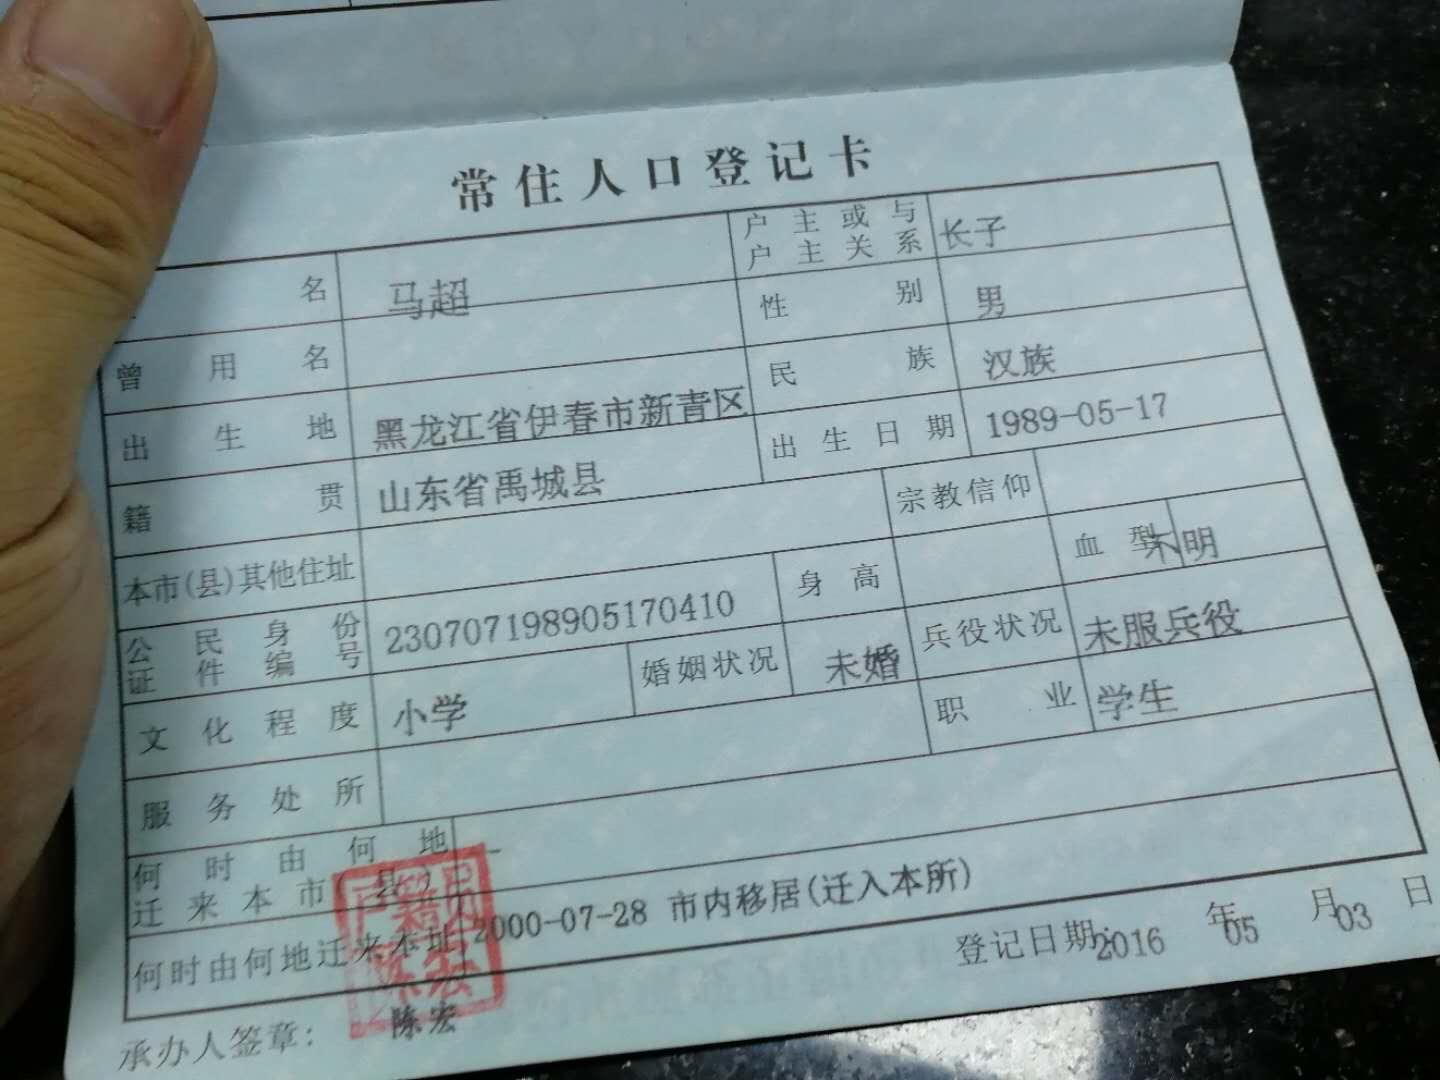 常住人口登记卡
名 马超 户主或与户主关系 长子
曾用名 性别 男
出生地 黑龙江省伊春市新青区 民族 汉族
籍贯 山东省禹城县 出生日期 1989-05-17
本市(县)其他住址 宗教信仰
公民身份证件编号 230707198905170410 身高 血型 不明
文化程度 小学 婚姻状况 未婚 兵役状况 未服兵役
服务处所 职业 学生
何时由何地迁来本市(县)
何时由何地迁来本址 2000-07-28 市内移居(迁入本所)
户籍员
陈宏
承办人签章： 陈宏 登记日期：2016 年05 月03 日